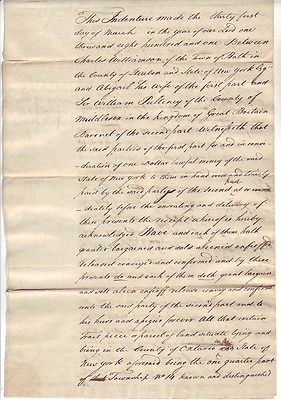 This Indenture made the thirty first
day of March in the year of our Lord one
thousand eight hundred and one Between
Charles Williamson of the Town of Bath in
the County of Steuben and State of New York Esqr
and Abigail his wife of the first part and
Sir William Pulteney of the County of
Middlesex in the Kingdom of Great Britain
Baronet of the second part Witnesseth that
the said parties of the first part for and in consi-
deration of one Dollar lawful money of the said
State of New York to them in hand well and truly
paid by the said party of the second part at or imme-
diately before the ensealing and delivery of
these presents the receipt whereof is hereby
acknowledged Have and each of them hath
granted bargained and sold aliened enfeoffed
released conveyed and confirmed and by these
presents do and each of them doth grant bargain
and sell alien enfeoff release convey and confirm
unto the said party of the second part and to
his heirs and assigns forever All that certain
tract piece or parcel of land situate lying and
being in the County of Ontario in the State of
New York aforesaid being the one quarter part
of Township No 14 known and distinguished